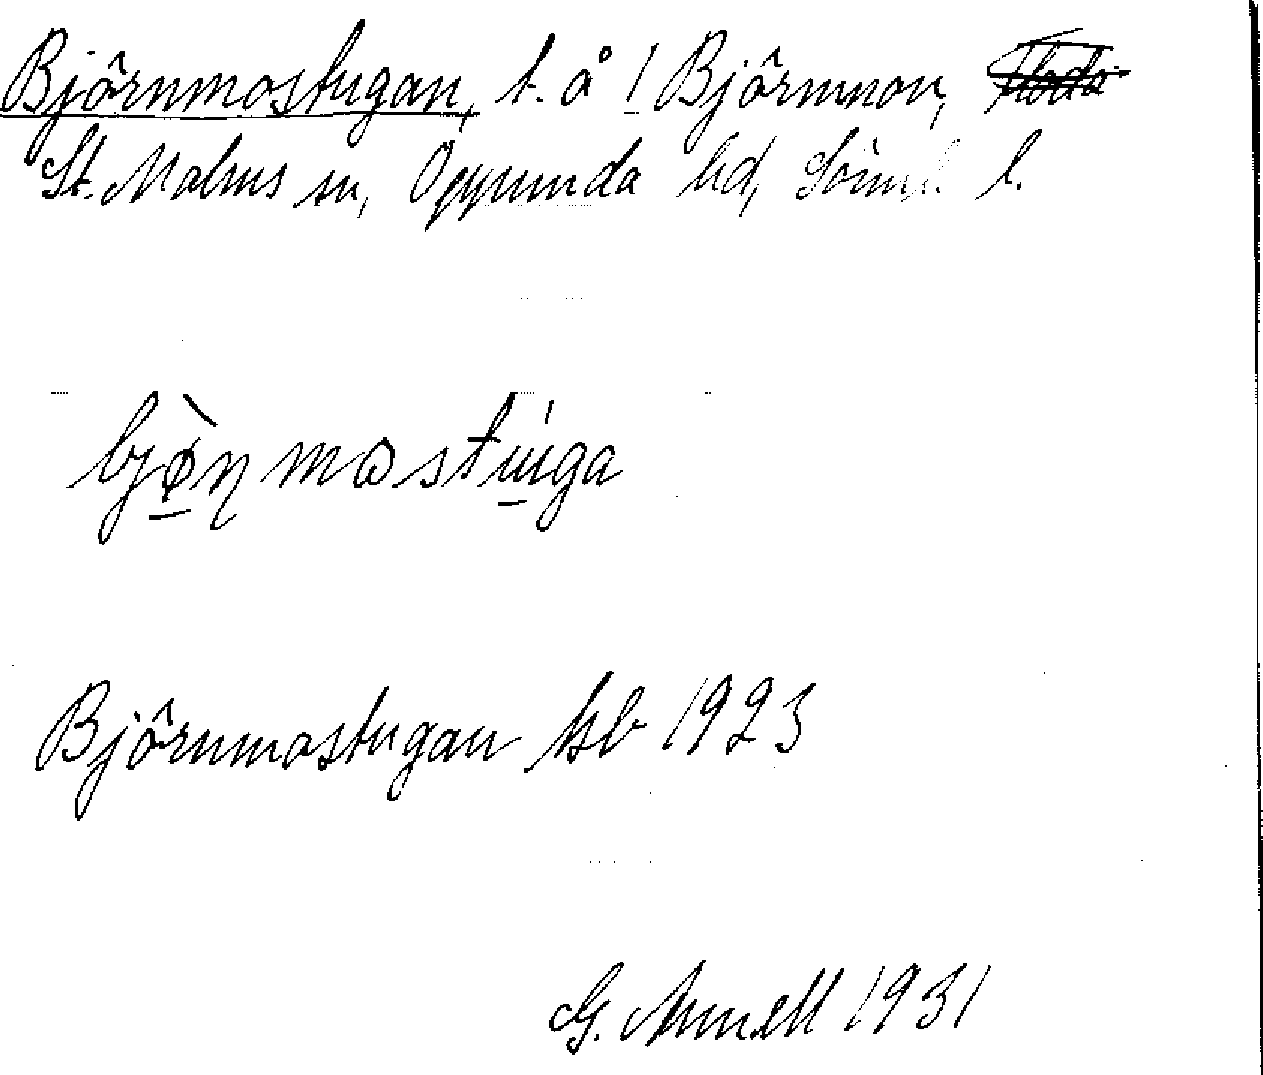 Björnmostugan, t. å 1 Björnmon,
St. Malms sn, Oppunda hd, Sörml. l.
bjø̀ṇmɷstúga
Björnmostugan kb 1923
G. Arnell 1931